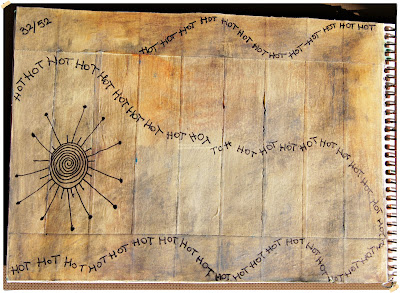 32/52
HOT HOT HOT HOT HOT HOT HOT HOT HOT HOT HOT HOT HOT
HOT HOT HOT HOT HOT HOT HOT HOT HOT HOT TOH HOT HOT HOT HOT HOT HOT HOT HOT HOT HOT
HOT HOT HOT HOT HOT HOT HOT HOT HOT HOT HOT HOT HOT HOT HOT HOT HOT HOT HOT